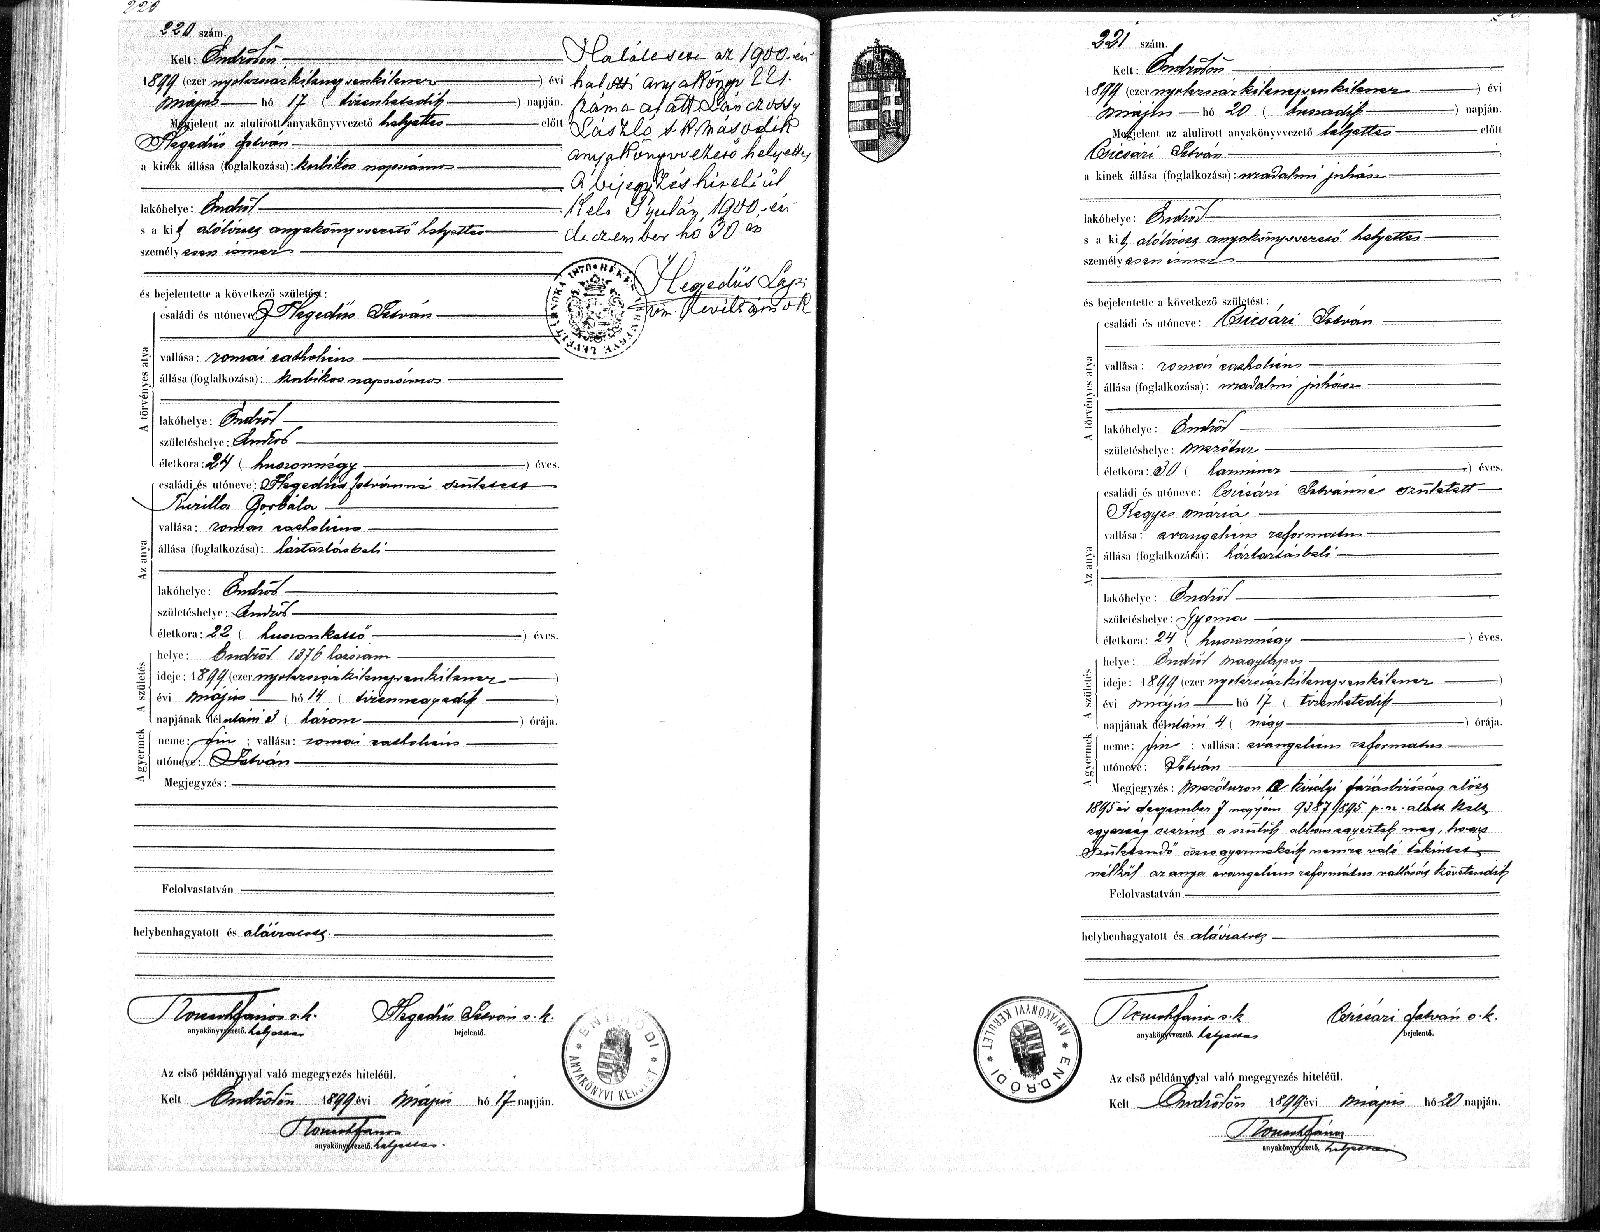 220
220 szám.
Kelt: Endrődön
1899 (ezer nyolczszázkilenczvenkilencz) évi
május hó 17 (tizenhetedik) napján.
Megjelent az alulirott anyakönyvvezető helyettes előtt
Hegedüs István
a kinek állása (foglalkozása): kubikos napszámos
lakóhelye: Endrőd
s a kit alólirott anyakönyvvezető helyettes
személyesen ismer
és bejelentette a következő születést:
A törvényes atya
családi és utóneve: Hegedüs István
vallása: romai catholicus
állása (foglalkozása): kubikos napszámos
lakóhelye: Endrőd
születéshelye: Endrőd
életkora: 24 (huszonnégy) éves.
Az anya
családi és utóneve: Hegedüs Istvánné született
Kurilla Borbála
vallása: romai catholicus
állása (foglalkozása): háztartásbeli
lakóhelye: Endrőd
születéshelye: Endrőd
életkora: 22 (huszonkettő) éves.
A születés
helye: Endrőd 1376 házszám
ideje: 1899 (ezer nyolczszázkilenczvenkilencz)
évi május hó 14 (tizennegyedik)
napjának délutáni 3 (három) órája.
A gyermek
neme: fiu; vallása: romai catholicus
utóneve: István
Megjegyzés:
Felolvastatván
helybenhagyatott és aláiratott.
János s. k. Hegedüs István s. k.
anyakönyvvezető. helyettes bejelentő.
Az első példánynyal való megegyezés hiteléül.
Kelt Endrődön 1899 évi május hó 17 napján.
János
anyakönyvvezető. helyettes.
ENDRŐDI ANYAKÖNYVI KERÜLET
Halálesete az 1900. évi
halotti anyakönyv 221.
száma alatt
László s. k. második
anyakönyvvezető helyettes
A bejegyzés hiteléül
Kelt Gyulán, 1900. évi
deczember hó 30 án
Hegedüs
221 szám.
Kelt: Endrődön
1899 (ezer nyolczszázkilenczvenkilencz) évi
május hó 20 (huszadik) napján.
Megjelent az alulirott anyakönyvvezető helyettes előtt
Csicsári István
a kinek állása (foglalkozása): uradalmi juhász
lakóhelye: Endrőd
s a kit alólirott anyakönyvvezető helyettes
személyesen ismer
és bejelentette a következő születést:
A törvényes atya
családi és utóneve: Csicsári István
vallása: romai catholicus
állása (foglalkozása): uradalmi juhász
lakóhelye: Endrőd
születéshelye: Mezőtur
életkora: 30 (harmincz) éves.
Az anya
családi és utóneve: Csicsári Istvánné született
Kegyes Mária
vallása: evangelicus reformatus
állása (foglalkozása): háztartásbeli
lakóhelye: Endrőd
születéshelye: Gyoma
életkora: 24 (huszonnégy) éves.
A születés
helye: Endrőd Nagylapos
ideje: 1899 (ezer nyolczszázkilenczvenkilencz)
évi május hó 17 (tizenhetedik)
napjának délutáni 4 (négy) órája.
A gyermek
neme: fiu; vallása: evangelicus reformatus
utóneve: István
Megjegyzés: Mezőturon a királyi járásbiróság előtt
1895 év deczember 7 napján 9387/1895 p. sz. alatt kelt
egyezség szerint a szülők abban egyeztek meg, hogy
születendő összes gyermekeik nemre való tekintet
nélkül az anya evangelicus református vallását követendik
Felolvastatván
helybenhagyatott és aláiratott
János s. k. Csicsári István s. k.
anyakönyvvezető. helyettes bejelentő.
Az első példánynyal való megegyezés hiteléül.
Kelt Endrődön 1899 évi május hó 20 napján.
János
anyakönyvvezető. helyettes
ENDRŐDI ANYAKÖNYVI KERÜLET